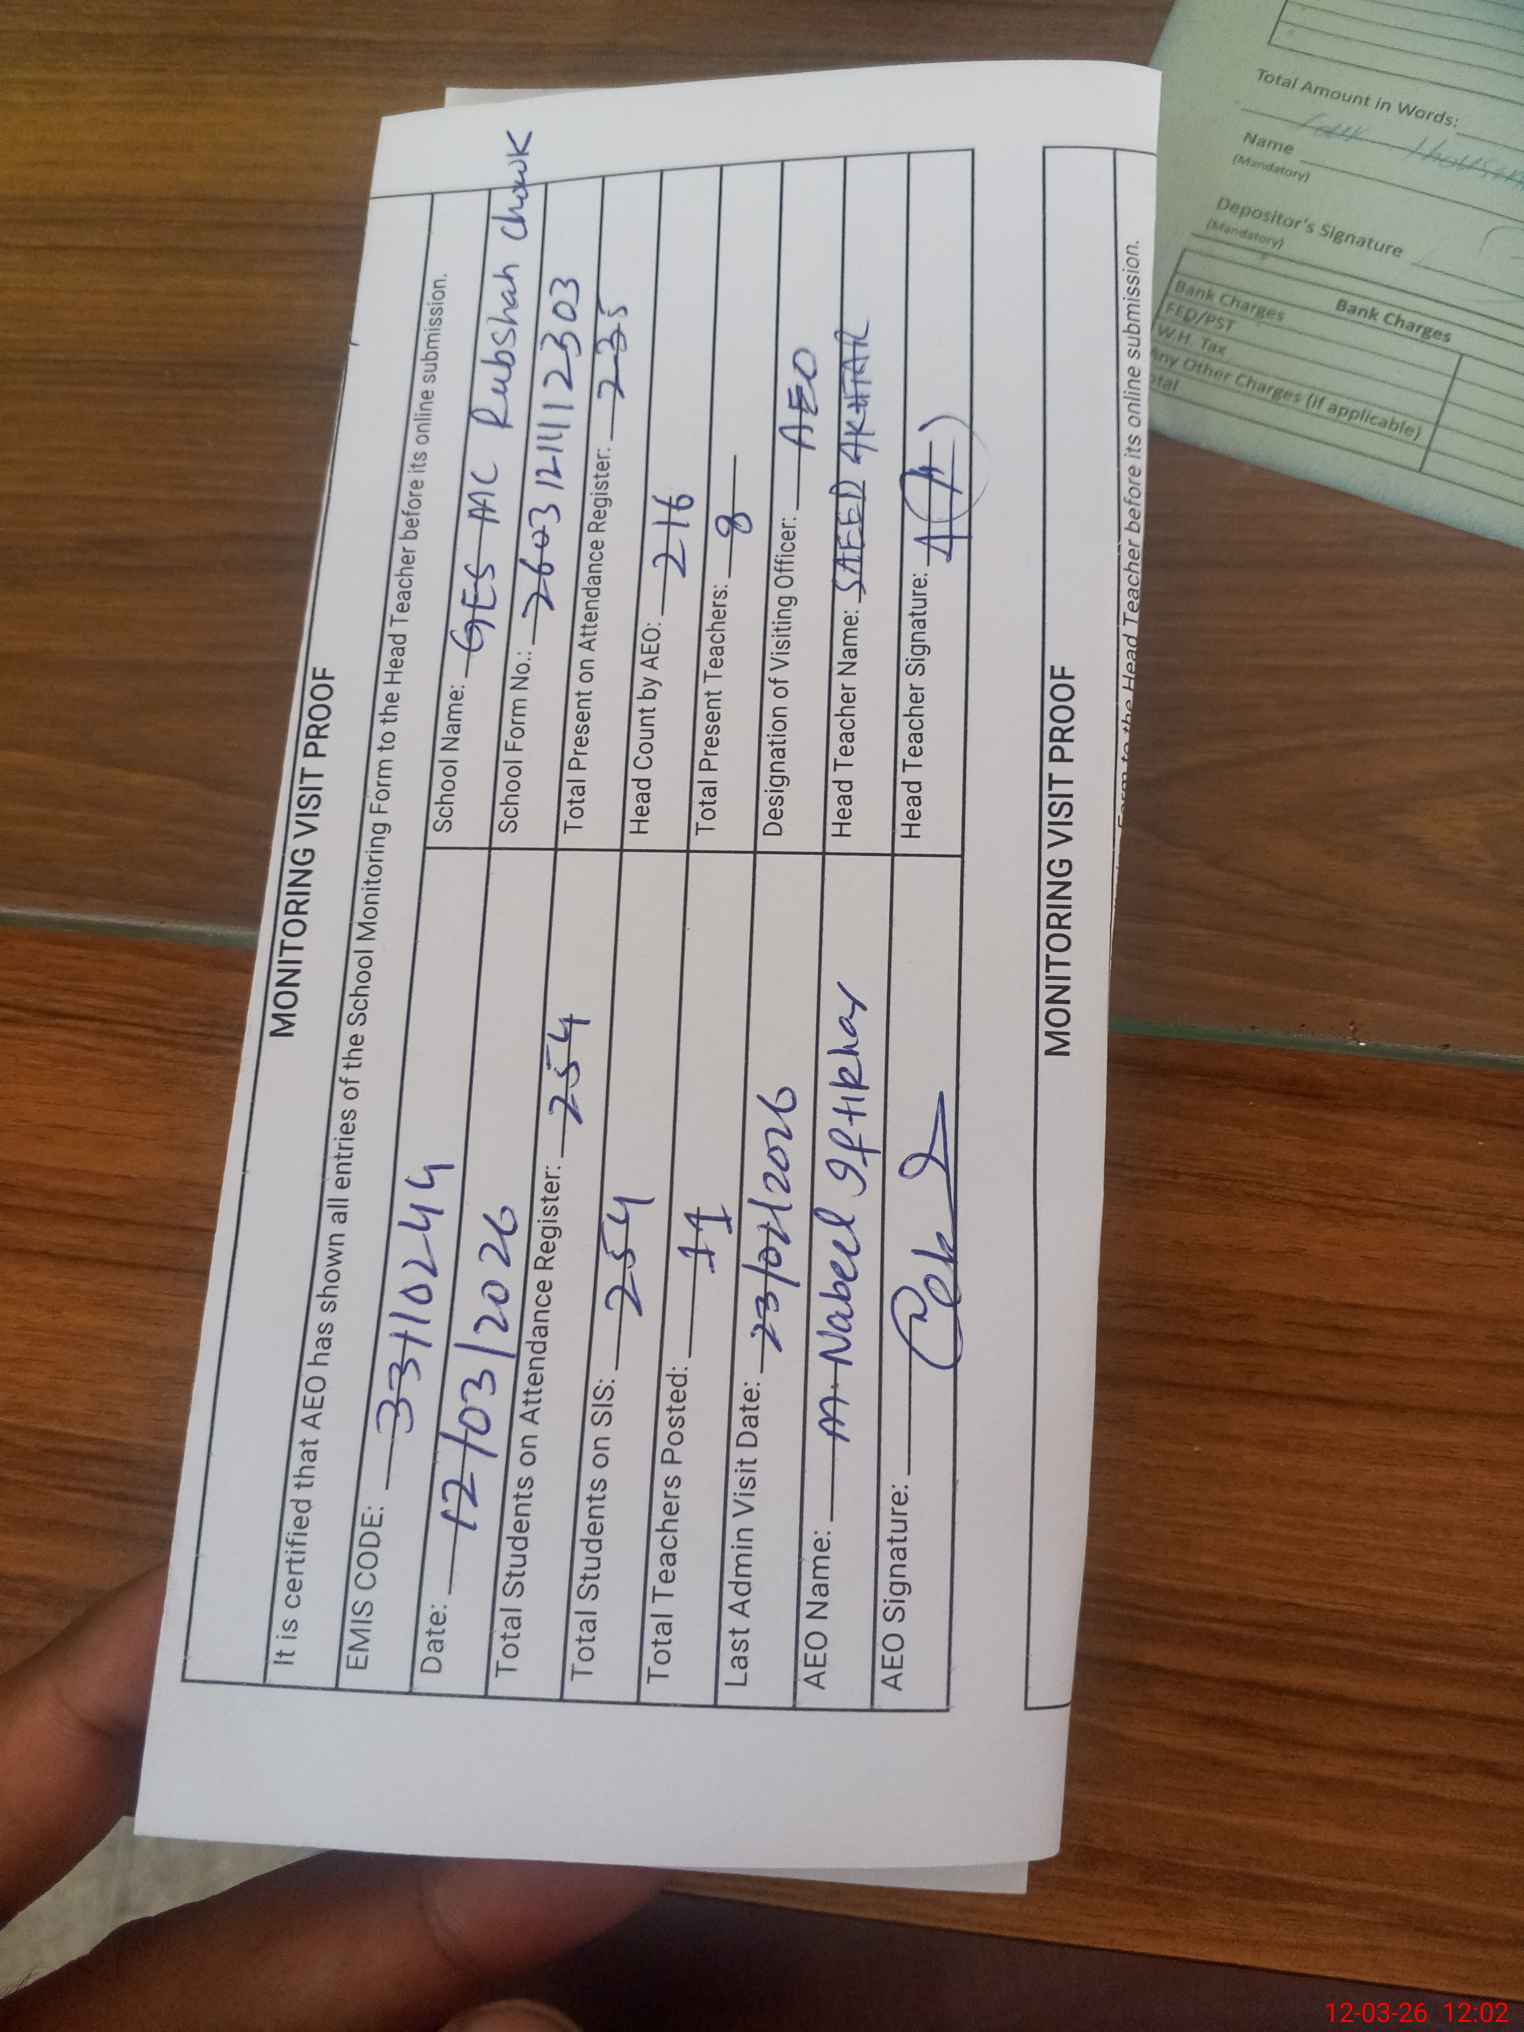 MONITORING VISIT PROOF
It is certified that AEO has shown all entries of the School Monitoring Form to the Head Teacher before its online submission.
EMIS CODE: 33110244 School Name: GES MC Rubshah Chowk
Date: 12/03/2026 School Form No.: 2603121411 2303
Total Students on Attendance Register: 254 Total Present on Attendance Register: 235
Total Students on SIS: 254 Head Count by AEO: 216
Total Teachers Posted: 11 Total Present Teachers: 8
Last Admin Visit Date: 23/02/2026 Designation of Visiting Officer: AEO
AEO Name: M. Nabeel Iftikhar Head Teacher Name: SAEED AKHTAR
AEO Signature: Head Teacher Signature:
MONITORING VISIT PROOF
Form to the Head Teacher before its online submission.
Total Amount in Words:
Name
(Mandatory)
Depositor's Signature
(Mandatory)
Bank Charges
Bank Charges
FED/PST
W.H. Tax
Any Other Charges (if applicable)
12-03-26 12:02